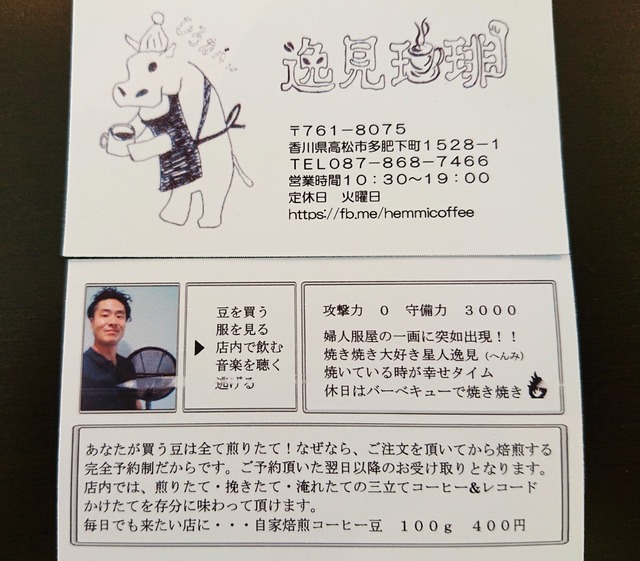 逸見珈琲
〒761-8075
香川県高松市多肥下町1528-1
TEL087-868-7466
営業時間10:30~19:00
定休日 火曜日
https://fb.me/hemmicoffee
豆を買う
服を見る
▶店内で飲む
音楽を聴く
逃げる
攻撃力 0 守備力 3000
婦人服屋の一画に突如出現!!
焼き焼き大好き星人逸見(へんみ)
焼いている時が幸せタイム
休日はバーベキューで焼き焼き
あなたが買う豆は全て煎りたて!なぜなら、ご注文を頂いてから焙煎する
完全予約制だからです。ご予約頂いた翌日以降のお受け取りとなります。
店内では、煎りたて・挽きたて・淹れたての三立てコーヒー&レコード
かけたてを存分に味わって頂けます。
毎日でも来たい店に・・・自家焙煎コーヒー豆 100g 400円